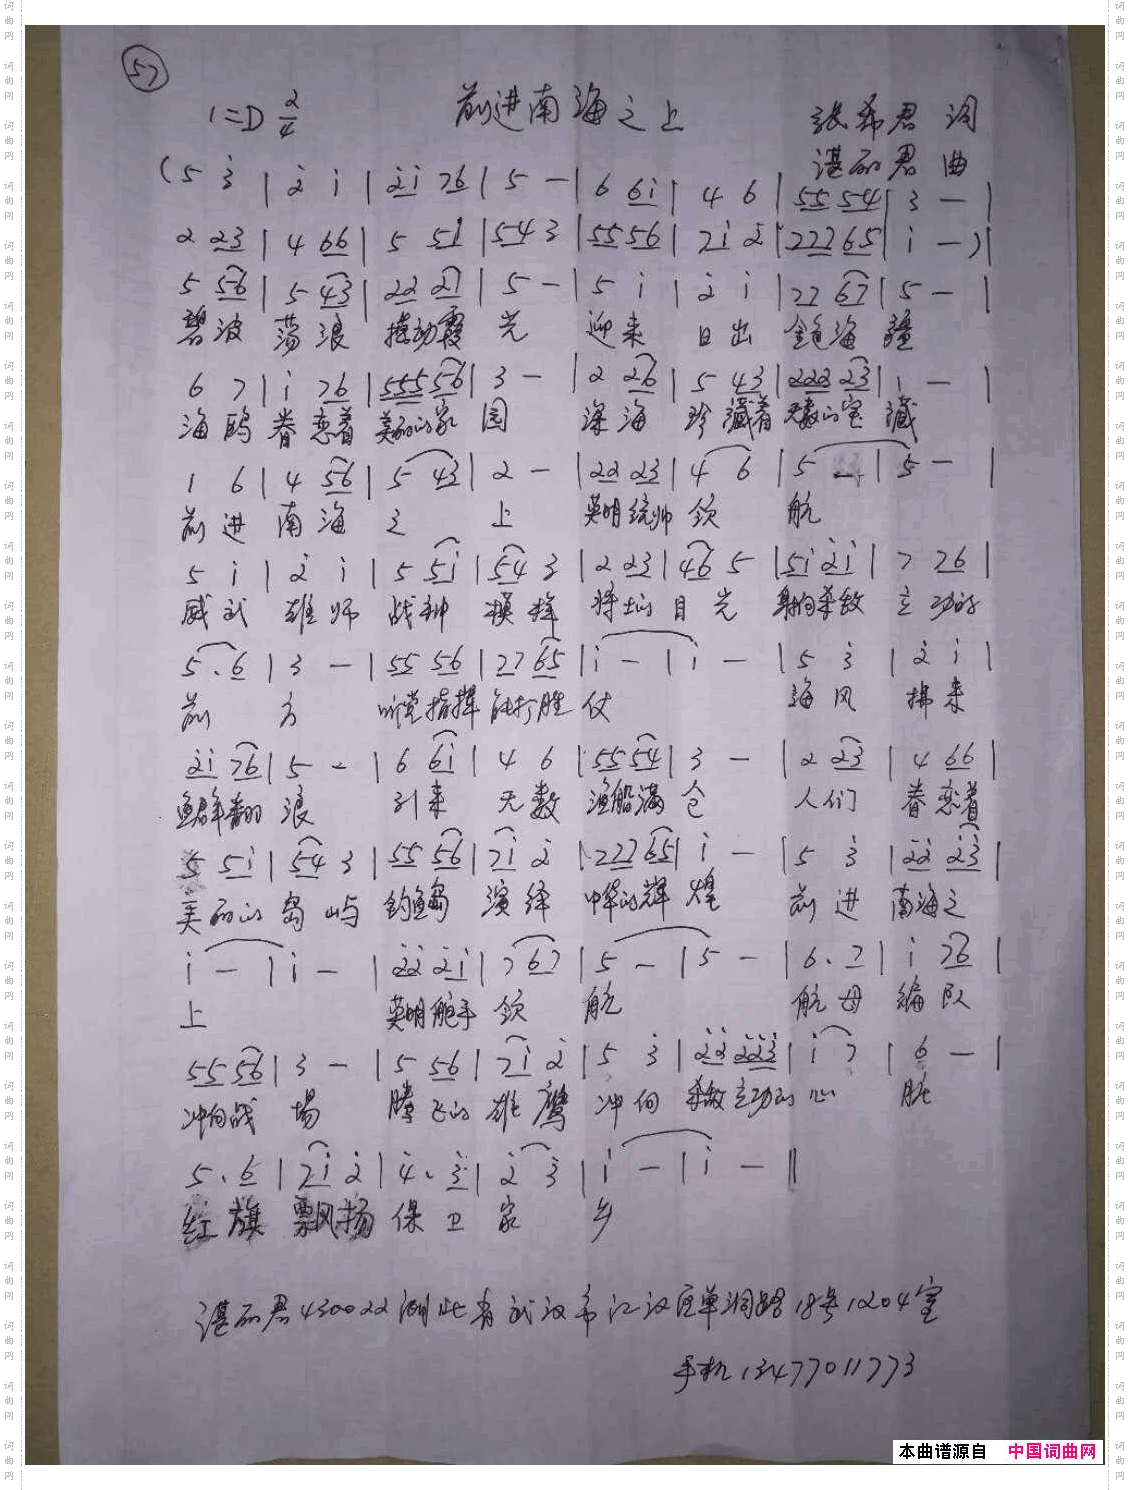 57
1=D 2/4 前进南海之上 张希君 词
谌丽君 曲
(5 3̇ | 2̇ 1̇ | 2̇1̇ 76 | 5 — | 6 61̇ | 4 6 | 55 54 | 3 — |
2 23 | 4 66 | 5 51̇ | 54 3 | 55 56 | 71̇ 2̇ | 777 65 | 1̇ —) |
5 56 | 5 43 | 22 27 | 5 — | 5 1̇ | 2̇ 1̇ | 77 67 | 5 — |
碧波 荡浪 摇动霞 光 迎来 日出 金色海 疆
6 7 | 1̇ 76 | 555 56 | 3 — | 2 26 | 5 43 | 222 23 | 1 — |
海鸥 眷恋着 美丽的家 园 深海 珍藏着 无数的宝 藏
1 6 | 4 56 | 5 43 | 2 — | 22 23 | 4 6 | 5 — | 5 — |
前进 南海 之 上 英明统帅 领 航
5 1̇ | 2̇ 1̇ | 5 51̇ | 54 3 | 2 23 | 46 5 | 51̇ 2̇1̇ | 7 76 |
威武 雄师 战神 将士的 目光 射向杀敌 立功的
5. 6 | 3 — | 55 56 | 77 65 | 1̇ — | 1̇ — | 5 3̇ | 2̇ 1̇ |
前 方 听党指挥 能打胜 仗 海风 拂来
2̇1̇ 76 | 5 — | 6 61̇ | 4 6 | 55 54 | 3 — | 2 23 | 4 66 |
鱼群翻 浪 引来 无数 渔船满 仓 人们 眷恋着
5 51̇ | 54 3 | 55 56 | 71̇ 2̇ | 777 65 | 1̇ — | 5 3̇ | 2̇2̇ 2̇3̇ |
美丽的 岛屿 钓鱼岛 演绎 中华的辉 煌 前进 南海之
1̇ — | 1̇ — | 2̇2̇ 2̇1̇ | 7 67 | 5 — | 5 — | 6. 7 | 1̇ 76 |
上 英明舵手 领 航 航母 编队
55 56 | 3 — | 5 56 | 71̇ 2̇ | 5 3̇ | 2̇2̇ 2̇2̇3̇ | 1̇ 7 | 6 — |
冲向战 场 腾飞的 雄鹰 冲向 杀敌立功的 心 脏
5. 6 | 71̇ 2̇ | 4̇. 3̇ | 2̇ 3̇ | 1̇ — | 1̇ — ‖
红旗 飘扬 保卫 家 乡
谌丽君 430022 湖北省武汉市江汉区单洞路18号1204室
手机13477011773
本曲谱源自 中国词曲网